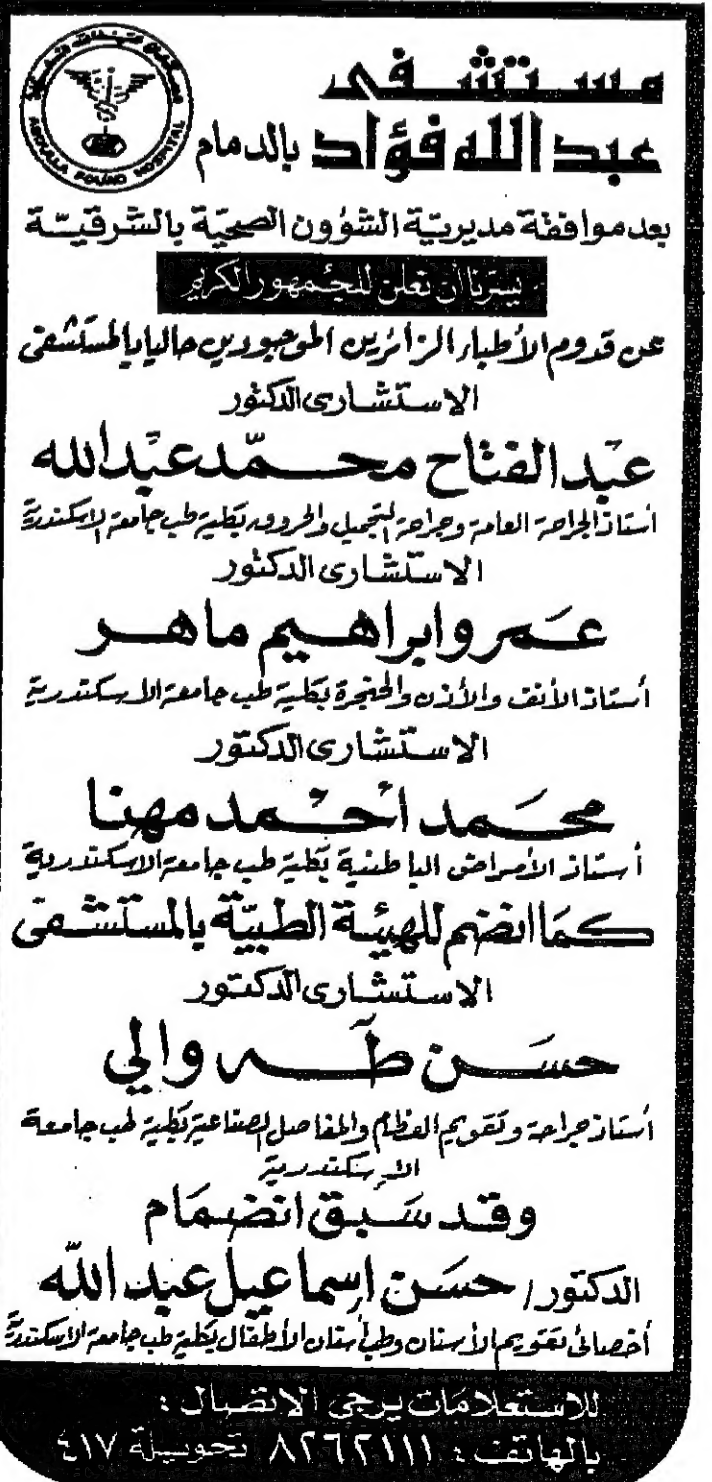 مستشفى
عبد الله فؤاد بالدمام
مستشفى عبد الله فؤاد
ABDULLA FOUAD HOSPITAL
بعد موافقة مديرية الشؤون الصحية بالشرقية
يسرنا أن نعلن للجمهور الكريم
عن قدوم الأطباء الزائرين الموجودين حاليا بالمستشفى
الاستشارى الدكتور
عبد الفتاح محمد عبد الله
أستاذ الجراحة العامة وجراحة التجميل والحروق بكلية طب جامعة الاسكندرية
الاستشارى الدكتور
عمرو ابراهيم ماهر
أستاذ الأنف والأذن والحنجرة بكلية طب جامعة الاسكندرية
الاستشارى الدكتور
محمد أحمد مهنا
أستاذ الأمراض الباطنية بكلية طب جامعة الاسكندرية
كما انضم للهيئة الطبية بالمستشفى
الاستشارى الدكتور
حسن طه والي
أستاذ جراحة وتقويم العظام والمفاصل الصناعية بكلية طب جامعة
الإسكندرية
وقد سبق انضمام
الدكتور/ حسن إسماعيل عبد الله
أخصائى تقويم الأسنان وطب أسنان الأطفال بكلية طب جامعة الاسكندرية
للاستعلامات يرجى الاتصال :
بالهاتف : ٨٢٦٢١١١ تحويلة ٤١٧